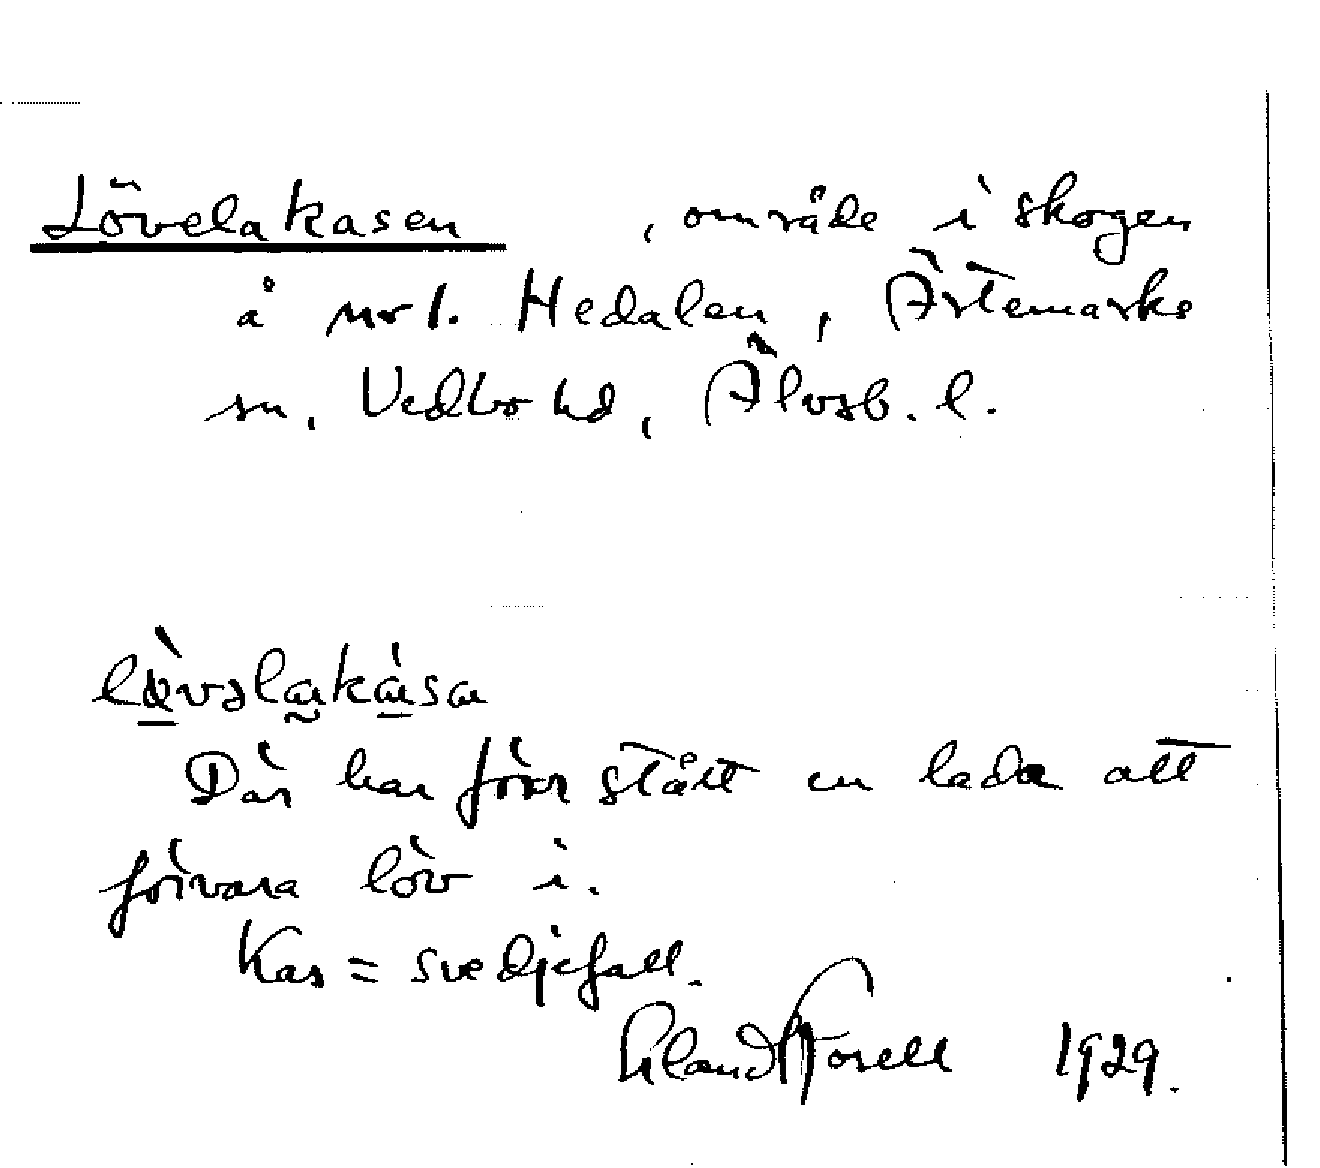 Lövelakasen , område i skogen
å nr 1. Hedalen, Ärtemarks
sn, Vedbo hd, Älvsb. l.
lö̀vəlakása
Där har förr stått en lada att
förvara löv i.
Kas = svedjefall.
Forell 1929.